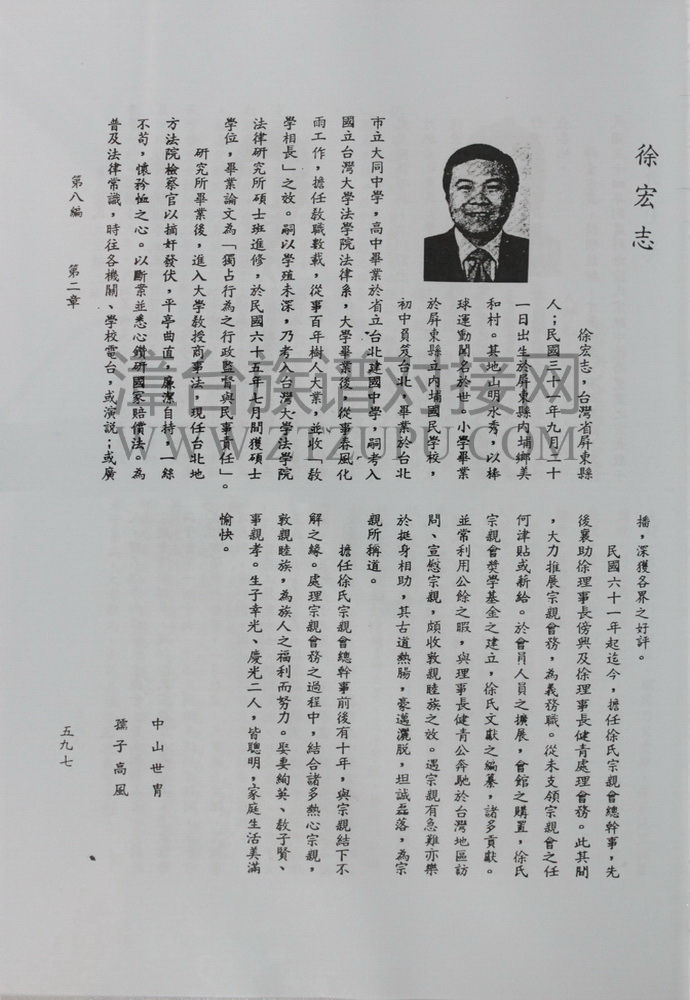 徐宏志
徐宏志，台灣省屏東縣
人；民國三十一年九月二十
一日出生於屏東縣內埔鄉美
和村。其地山明水秀，以棒
球運動聞名於世。小學畢業
於屏東縣立內埔國民學校，
初中員笈台北，畢業於台北
市立大同中學，高中畢業於省立台北建國中學，嗣考入
國立台灣大學法學院法律系，大學畢業後，從事春風化
雨工作，擔任教職數載，從事百年樹人大業，並收「教
學相長」之效。嗣以學殖未深，乃考入台灣大學法學院
法律研究所碩士班進修，於民國六十五年七月間獲碩士
學位，畢業論文為「獨占行為之行政監督與民事責任」。
研究所畢業後，進入大學教授商事法，現任台北地
方法院檢察官以摘奸發伏，平亭曲直，廉潔自持，一絲
不苟，懷矜恤之心。以斷業並悉心鑽研國家賠償法。為
普及法律常識，時往各機關、學校電台，或演說；或廣
播，深獲各界之好評。
民國六十一年起迄今，擔任徐氏宗親會總幹事，先
後襄助徐理事長傍興及徐理事長健青處理會務。此其間
，大力推展宗親會務，為義務職。從未支領宗親會之任
何津貼或薪給。於會員人員之擴展，會館之購置，徐氏
宗親會獎學基金之建立，徐氏文獻之編纂，諸多貢獻。
並常利用公餘之暇，與理事長健青公奔馳於台灣地區訪
問、宣慰宗親，頗收敦親睦族之效。遇宗親有急難亦樂
於挺身相助，其古道熱腸，豪邁灑脫，坦誠磊落，為宗
親所稱道。
擔任徐氏宗親會總幹事前後有十年，與宗親結下不
解之緣。處理宗親會務之過程中，結合諸多熱心宗親，
敦親睦族，為族人之福利而努力。娶妻絢英、教子賢、
事親孝。生子幸光、慶光二人，皆聰明，家庭生活美滿
愉快。
中山世冑
孺子高風
第八編 第二章
五九七
滢台族谱对接网
WWW.ZTZUPU.COM